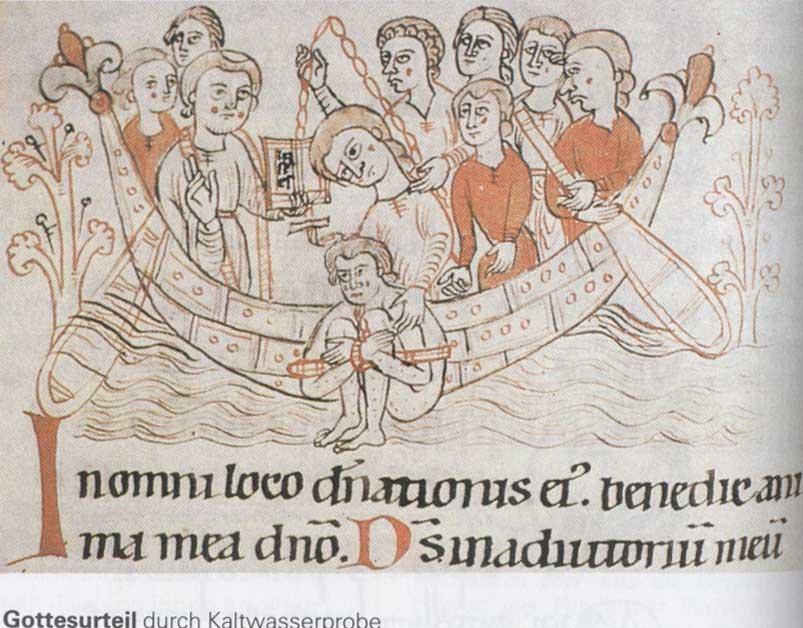 In omni loco dn̄ationis eiꝰ. benedic ani
ma mea dn̄o. Ds̄ in adiutoriū meū
Gottesurteil durch Kaltwasserprobe